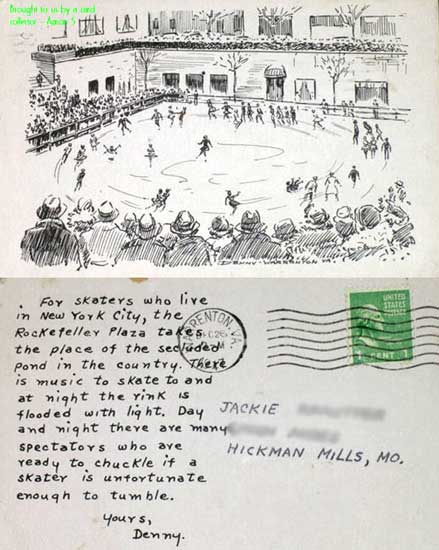 Brought to us by a card
collector - Aaron S
DENNY - WARRENTON VA.
. For skaters who live
in New York City, the
Rockefeller Plaza takes
the place of the secluded
pond in the country. There
is music to skate to and
at night the rink is
flooded with light. Day
and night there are many
spectators who are
ready to chuckle if a
skater is unfortunate
enough to tumble.
Yours,
Denny.
RENTON, VA.
UNITED
STATES
1 CENT 1
JACKIE
HICKMAN MILLS, MO.